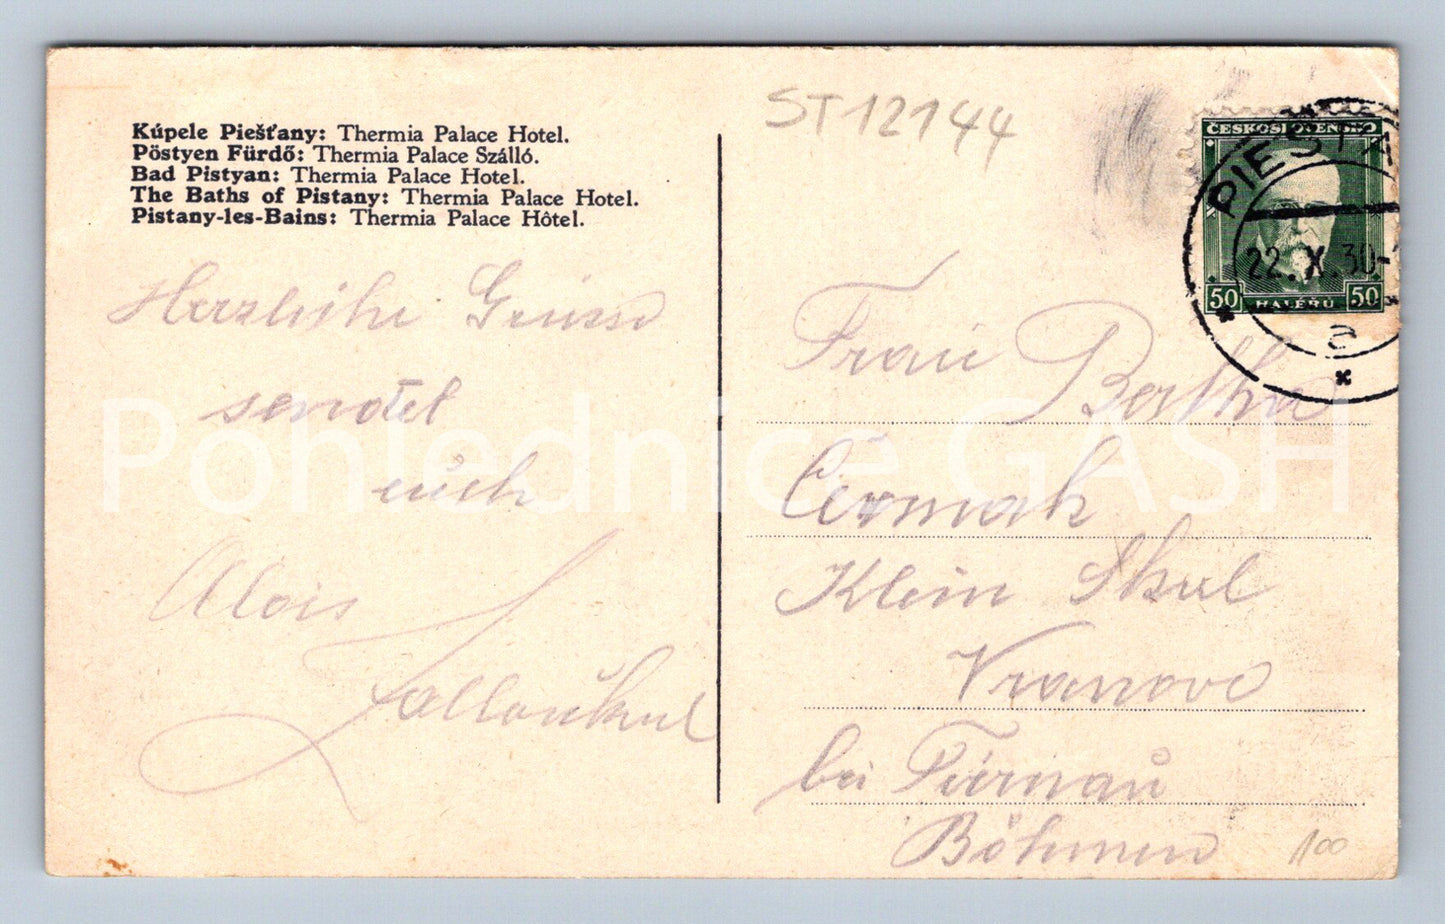 Kúpele Piešťany: Thermia Palace Hotel.
Pöstyen Fürdő: Thermia Palace Szálló.
Bad Pistyan: Thermia Palace Hotel.
The Baths of Pistany: Thermia Palace Hotel.
Pistany-les-Bains: Thermia Palace Hôtel.
ST12144
ČESKOSLOVENSKO
50 HALÉŘŮ 50
PIEŠŤA
22.X.30-
a
Herzliche Grüsse
sendet
euch
Alois
Frau Bertha
Čermak
Klein Skal
Vranové
bei Turnau
Böhmen
100
Pohlednice GASH